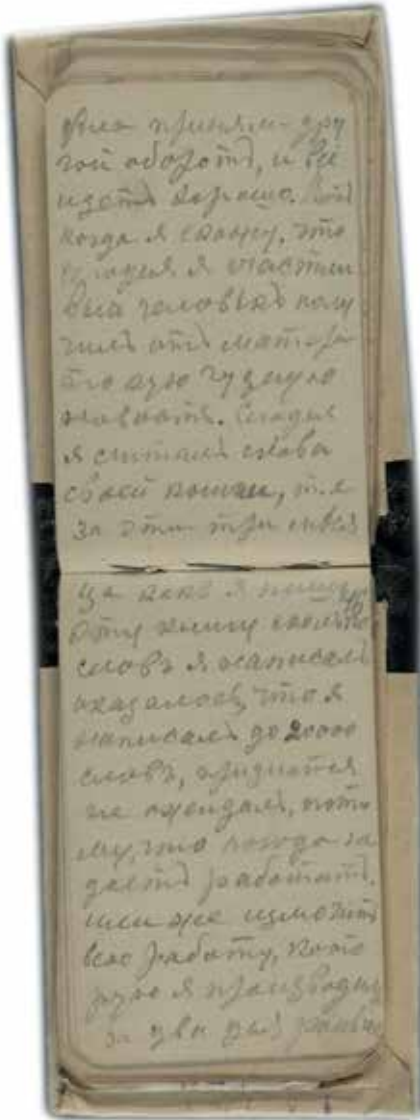 дела приняли дру
гой оборотъ, и всё
идетъ хорошо.
когда я скажу, что
я счастли
вый человекъ полу
чилъ отъ
эту чудную
новость. Сегодня
я считалъ слова
своей книги, т.е
за эти три меся
ца какъ я пишу
эту книгу сколько
словъ я написалъ
оказалось, что я
написалъ до 20000
словъ, признаться
не ожидалъ, пото
му, что погода
даетъ работать.
или же
всю работу, кото
рую я произвожу
за два дня